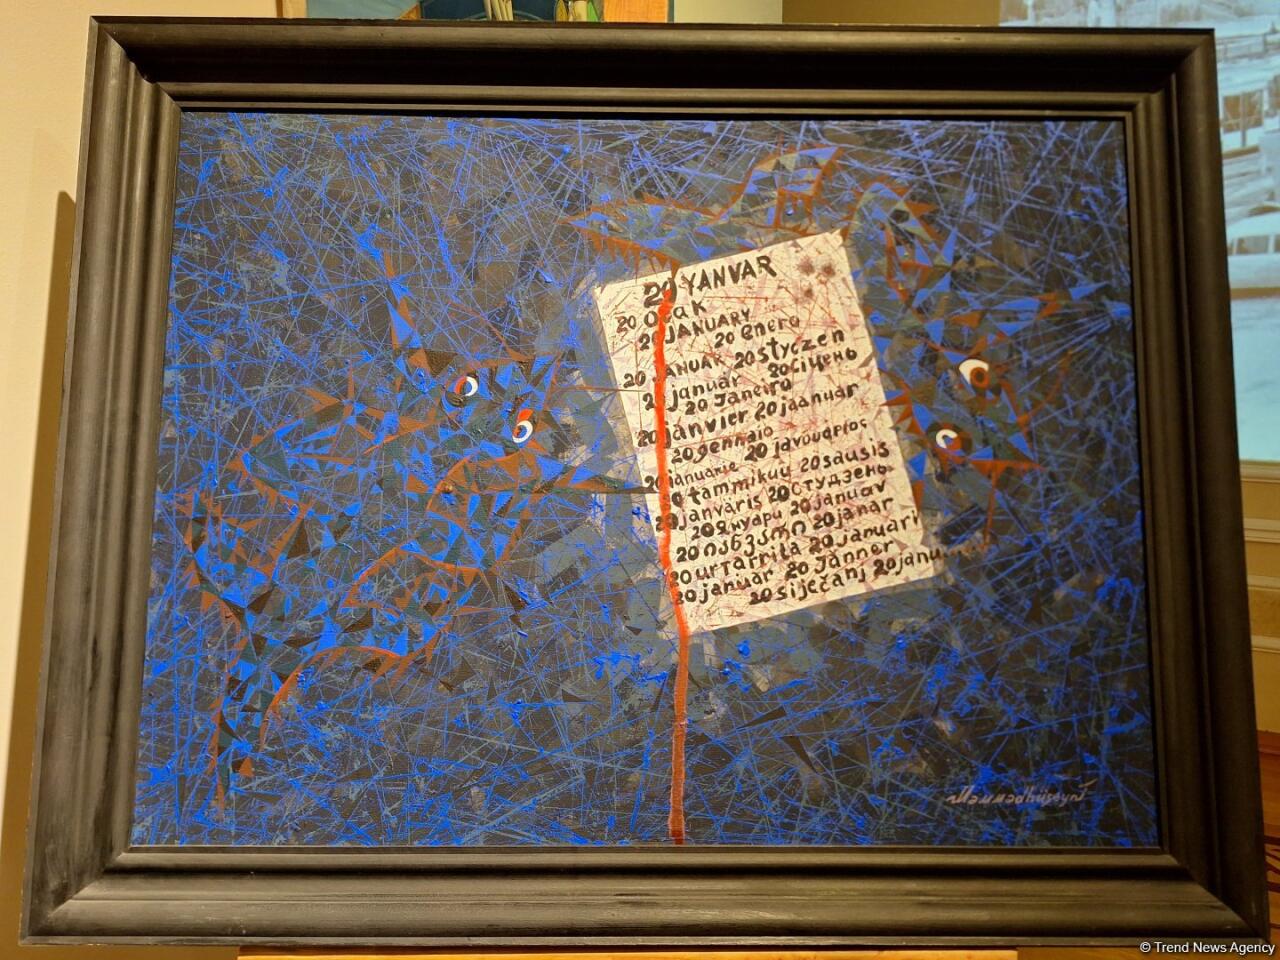 20 YANVAR
20 Ocak
20 JANUARY
20 enero
20 JANUAR 20 styczeń
20 januar 20 січень
20 Janeiro
20 janvier 20 jaanuar
20 gennaio 20 ιανουάριος
20 ianuarie 20 sausis
20 tammikuu
20 janvaris 20 студзень
20 януари 20 január
20 იანვარი 20 janar
20 urtarrila 20 januari
20 januar 20 Jänner
20 siječanj
Məmmədhüseyn
© Trend News Agency